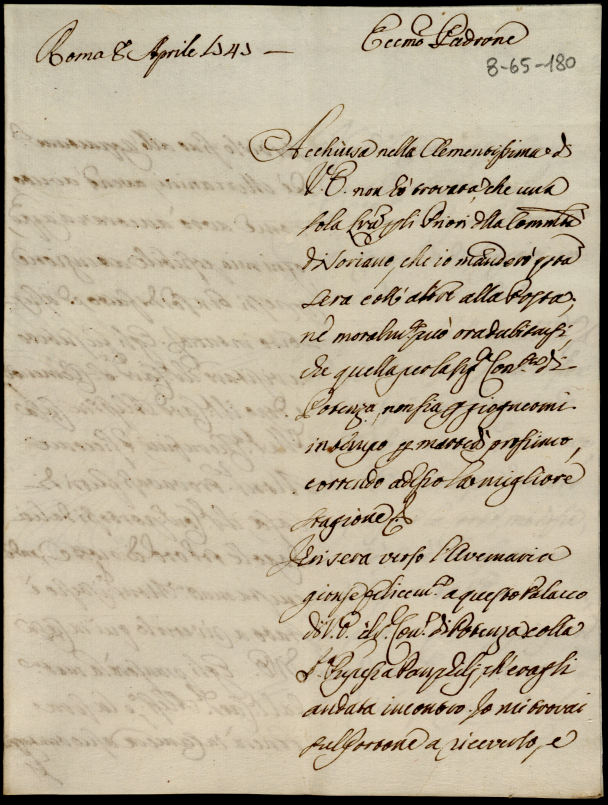 Roma 8 Aprile 1747
Eccmo Padrone
8-65-180
Acchiusa nella Clementissima di
V. E. non hò trovata, che una
sola Lrã pli Priori della Commtà
di Soriano, che io manderò qsta
sera coll' altre alla Posta;
nè può ora dubitarsi,
che quella per la Sigra Contssa di
Potenza, non sia p giognermi
in tempo p martedì prossimo,
correndo adesso la migliore
stagione.
Jeri sera verso l'Avemaria
gionse felicemte a questo Palazzo
di V. E. il Sr Conte di Potenza colla
Sra Pnpessa Panfilj, ch'eragli
andata incontro. Io mi trovai
sul Portone a riceverlo, e